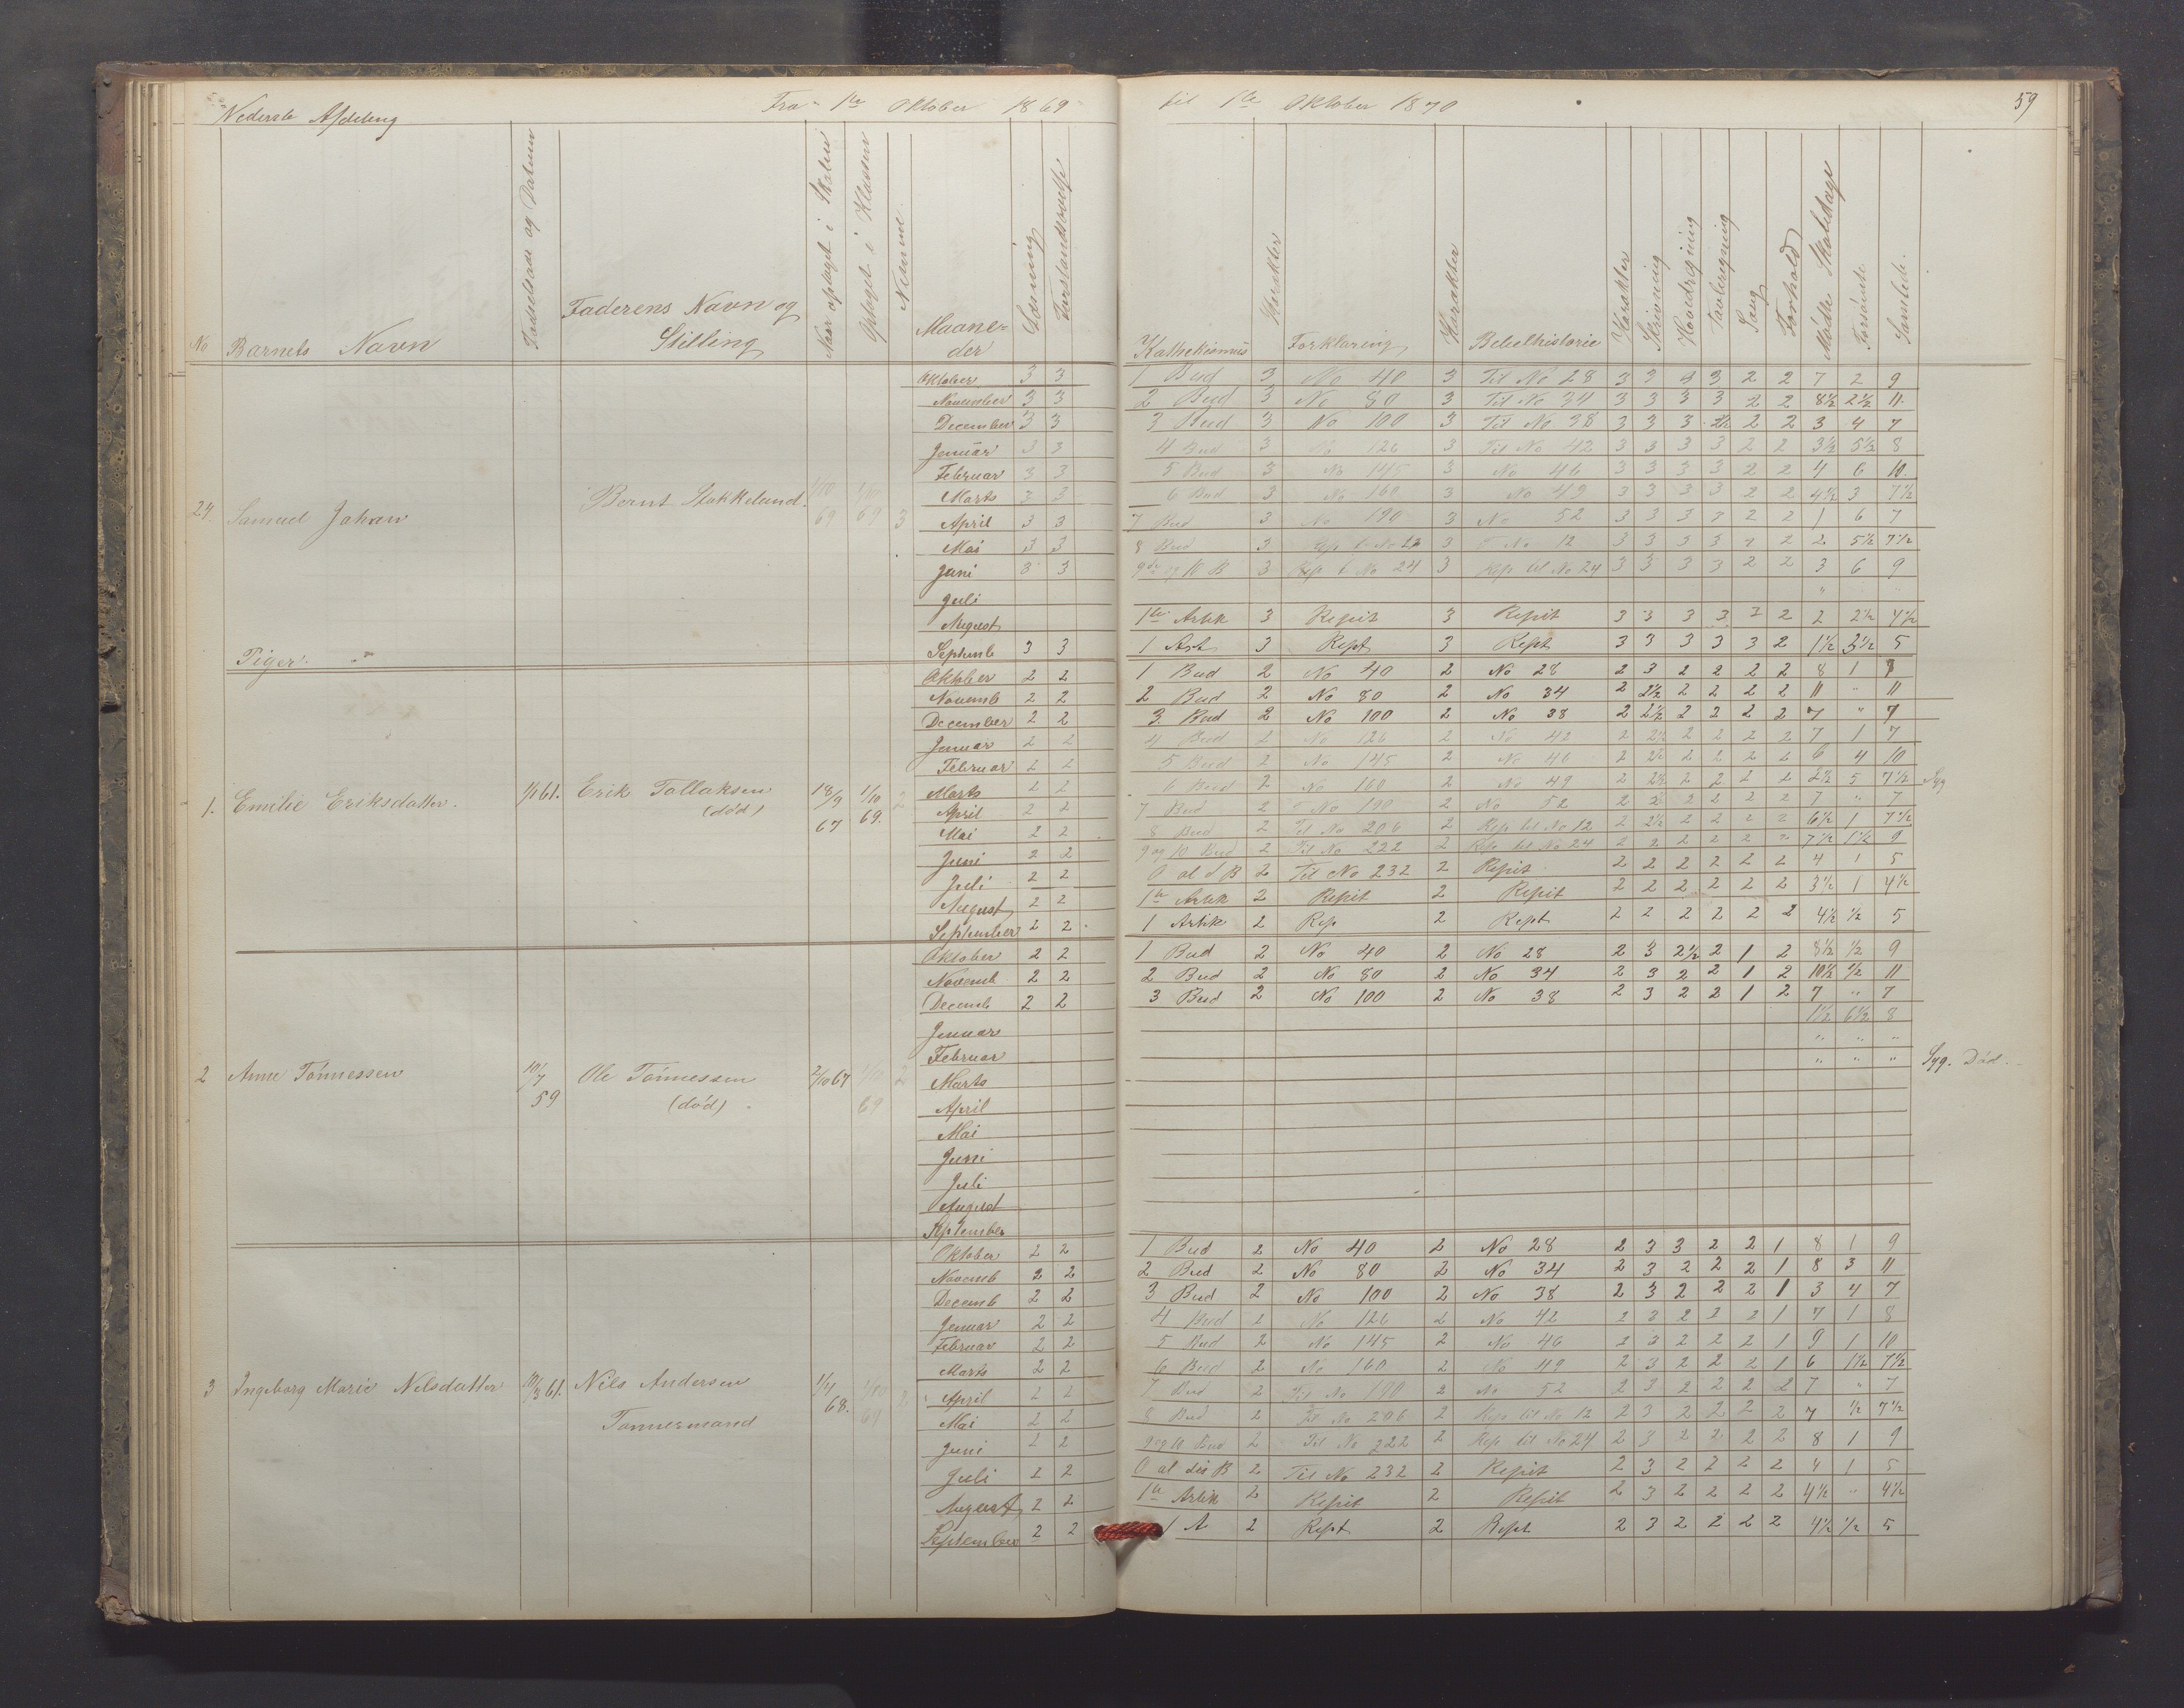 Nederste Afdeling Fra 1te Oktober 1869 til 1te Oktober 1870 59
No Barnets Navn Fødselsaar og Datum Faderens Navn og Stilling Naar optaget i Skolen Optaget i Klassen Nemme Maane-der Læsning Forstandsøvelse Kathekismus Karakter Forklaring Karakter Bibelhistorie Karakter Skrivning Hovedregning Tavleregning Sang Forhold Mødte Skoledage Forsømte Samlede
24. Samuel Johan Bernt Stokkeland. 1/10 69 1/10 69 3
Oktober 3 3 1 Bud 3 No 40 3 Til No 28 3 3 3 3 2 2 7 2 9
November 3 3 2 Bud 3 No 80 3 Til No 34 3 3 3 3 2 2 8½ 2½ 11
December 3 3 3 Bud 3 No 100 3 Til No 38 3 3 3 2½ 2 2 3 4 7
Januar 3 3 4 Bud 3 No 126 3 Til No 42 3 3 3 3 2 2 3½ 5½ 8
Februar 3 3 5 Bud 3 No 145 3 No 46 3 3 3 3 2 2 4 6 10
Marts 3 3 6 Bud 3 No 160 3 No 49 3 3 3 3 2 2 4½ 3 7½
April 3 3 7 Bud 3 No 190 3 No 52 3 3 3 3 2 2 1 6 7
Mai 3 3 8 Bud 3 3 No 12 3 3 3 3 2 2 5½ 7½
Juni 3 3 9de og 10 B 3 Rep t No 24 3 Rep til No 24 3 3 3 3 2 2 3 6 9
Juli "
August 1te Artik 3 Repit 3 Repit 3 3 3 3 3 2 2 2½ 4½
Septemb 3 3 1 Art 3 Rept 3 Rept 3 3 3 3 3 2 1½ 3½ 5
Piger.
1. Emilie Eriksdatter. 1/1 61. Erik Tollaksen (död) 18/9 67 1/10 69. 2
Oktober 2 2 1 Bud 2 No 40 2 No 28 2 3 2 2 2 2 8 1 9
Novemb 2 2 2 Bud 2 No 80 2 No 34 2 2½ 2 2 2 2 11 " 11
December 2 2 3 Bud 2 No 100 2 No 38 2 2½ 2 2 2 2 7 " 7
Januar 2 2 4 Bud 2 No 126 2 No 42 2 2½ 2 2 2 2 7 1 7
Februar 2 2 5 Bud 2 No 145 2 No 46 2 2½ 2 2 2 2 6 4 10
Marts 2 2 6 Bud 2 No 160 2 No 49 2 2½ 2 2 2 2 2½ 5 7½ Syg
April 2 2 7 Bud 2 No 190 2 No 52 2 2 2 2 2 2 7 " 7
Mai 2 2 8 Bud 2 Til No 206 2 Rep til No 12 2 2½ 2 2 2 2 6½ 1 7½
Juni 2 2 9 og 10 Bud 2 Til No 222 2 Rep til No 24 2 2 2 2 2 2 7½ 1½ 9
Juli 2 2 O al d B 2 Til No 232 2 Repit 2 2 2 2 2 2 4 1 5
August 2 2 1te Artik 2 Repit 2 Repit 2 2 2 2 2 2 3½ 1 4½
September 2 2 1 Artik 2 Rep 2 Rept 2 2 2 2 2 2 4½ ½ 5
2 Anne Tönnessen 10/7 59 Ole Tönnessen (död) 2/10 67 1/10 69 2
Oktober 2 2 1 Bud 2 No 40 2 No 28 2 3 2½ 2 1 2 8½ ½ 9
Novemb 2 2 2 Bud 2 No 80 2 No 34 2 3 2 2 1 2 10½ ½ 11
Decemb 2 2 3 Bud 2 No 100 2 No 38 2 3 2 2 1 2 7 " 7
Januar 1½ 6½ 8
Februar " " "
Marts " " " Syg. Död.
April
Mai
Juni
Juli
August
September
3 Ingeborg Marie Nilsdatter 61. Nils Andersen Tømmermand 1/4 68. 1/10 69 2
Oktober 2 2 1 Bud 2 No 40 2 No 28 2 3 3 2 2 1 8 1 9
Novemb 2 2 2 Bud 2 No 80 2 No 34 2 3 2 2 2 1 8 3 11
Decemb 2 2 3 Bud 2 No 100 2 No 38 2 3 2 2 2 1 3 4 7
Januar 2 2 4 Bud 2 No 126 2 No 42 2 3 2 2 2 1 7 1 8
Februar 2 2 5 Bud 2 No 145 2 No 46 2 3 2 2 2 1 9 1 10
Marts 2 2 6 Bud 2 No 160 2 No 49 2 3 2 2 2 1 6 1½ 7½
April 2 2 7 Bud 2 Til No 190 2 No 52 2 3 2 2 2 2 7 " 7
Mai 2 2 8 Bud 2 Til No 206 2 Rep til No 12 2 3 2 2 2 2 7 ½ 7½
Juni 2 2 9 og 10 Bud 2 Til No 222 2 Rep til No 24 2 3 2 2 2 2 8 1 9
Juli 2 2 O al dis B 2 Til No 232 2 Repit 2 3 2 2 2 2 4 1 5
August 2 2 1te Artik 2 Repit 2 Repit 2 3 2 2 2 2 4½ " 4½
September 2 2 1 A 2 Rept 2 Rept 2 3 2 2 2 2 4½ ½ 5